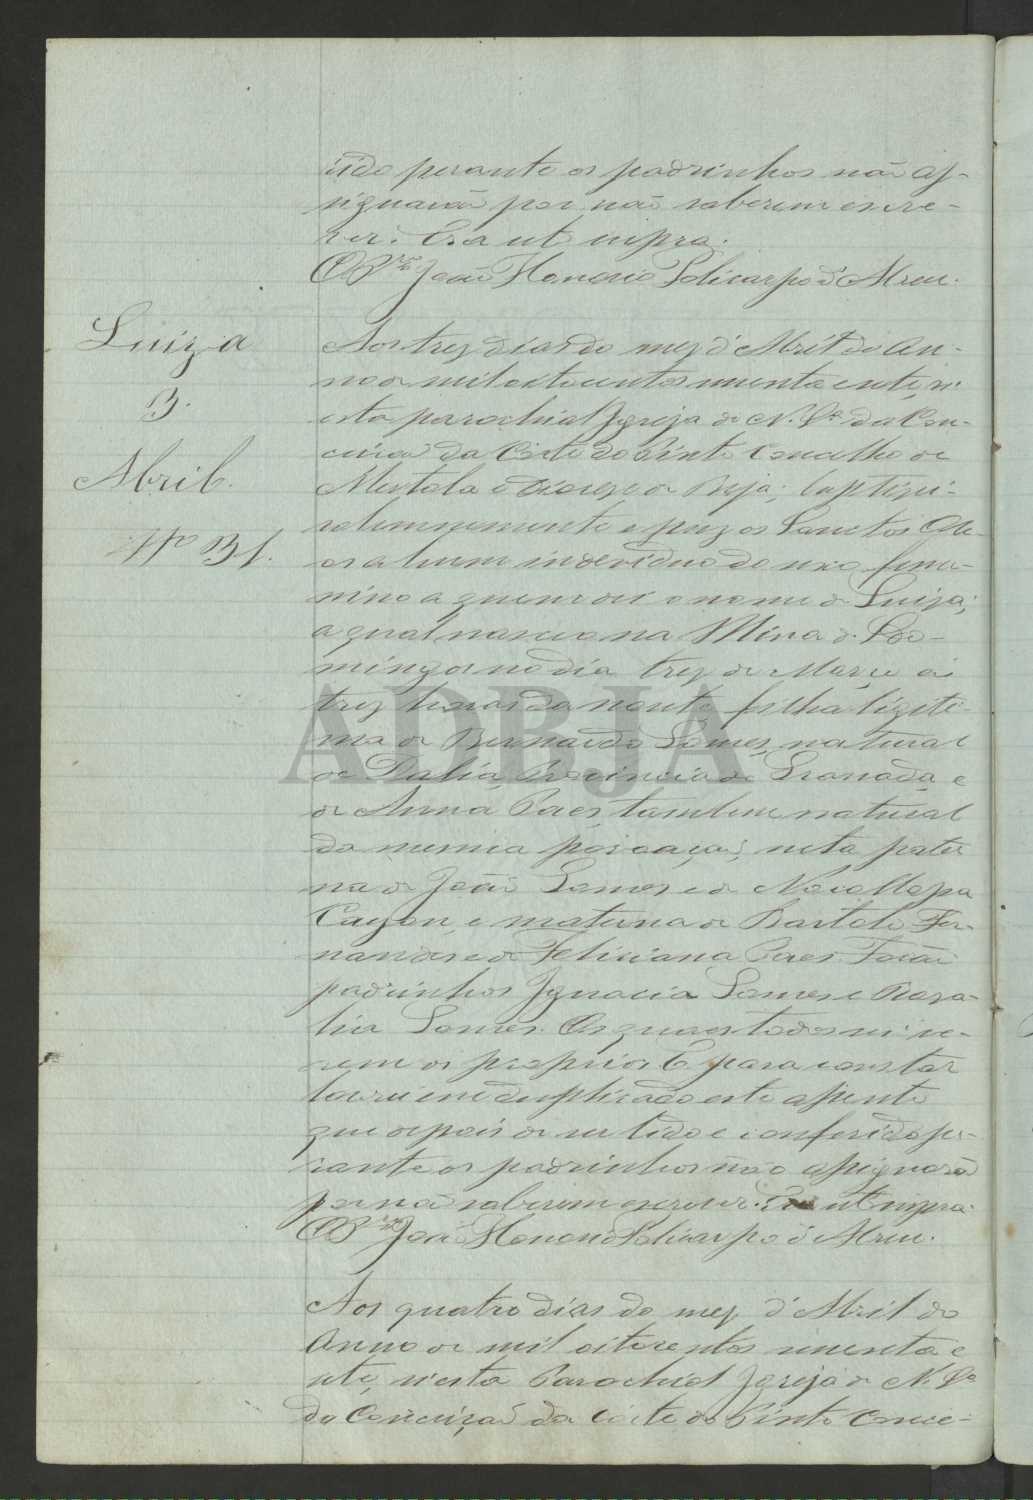 rido perante os padrinhos não as-
signarão por não saberem escre-
ver. Era ut supra.
O Pr.e João Honorio Policarpo d'Abreu.
Luiza
B.
Abril.
Nº 31.
Aos trez dias do mez d'Abril do An-
no de mil oitocentos secenta e sete, n'
esta parochial Igreja de N. Sª da Con-
ceição da Corte do Pinto Concelho de
Mertola e Diocese de Beja; baptizei
solemnemente e puz os Sanctos Ole-
os a hum individuo do sexo femi-
nino a quem dei o nome de Luiza;
a qual nasceo na Mina de S. Do-
mingos no dia trez de Março ás
trez horas da noute, filha legiti-
ma de Bernardo Gomes, natural
de Dalia, Provincia de Granada, e
de Anna Peres tambem natural
da mesma povoação; neta pater
na de João Gomes e de
e materna de Bartolo Fer-
nandes e de Feliciana Peres. Forão
padrinhos Ignacia Gomes e Rosa-
lia Gomes. Os quaes todos sei se-
rem os proprios. E para constar
lavrei em duplicado este assento
que depois de ser lido e conferido pe-
rante os padrinhos não assignarão
por não saberem escrever. Era ut supra.
O Pr.e João Honorio Policarpo d'Abreu.
Aos quatro dias do mez d'Abril do
Anno de mil oitocentos secenta e
sete, n'esta Parochial Igreja de N. Sª
da Conceição da Corte do Pinto Conce-
ADBJA